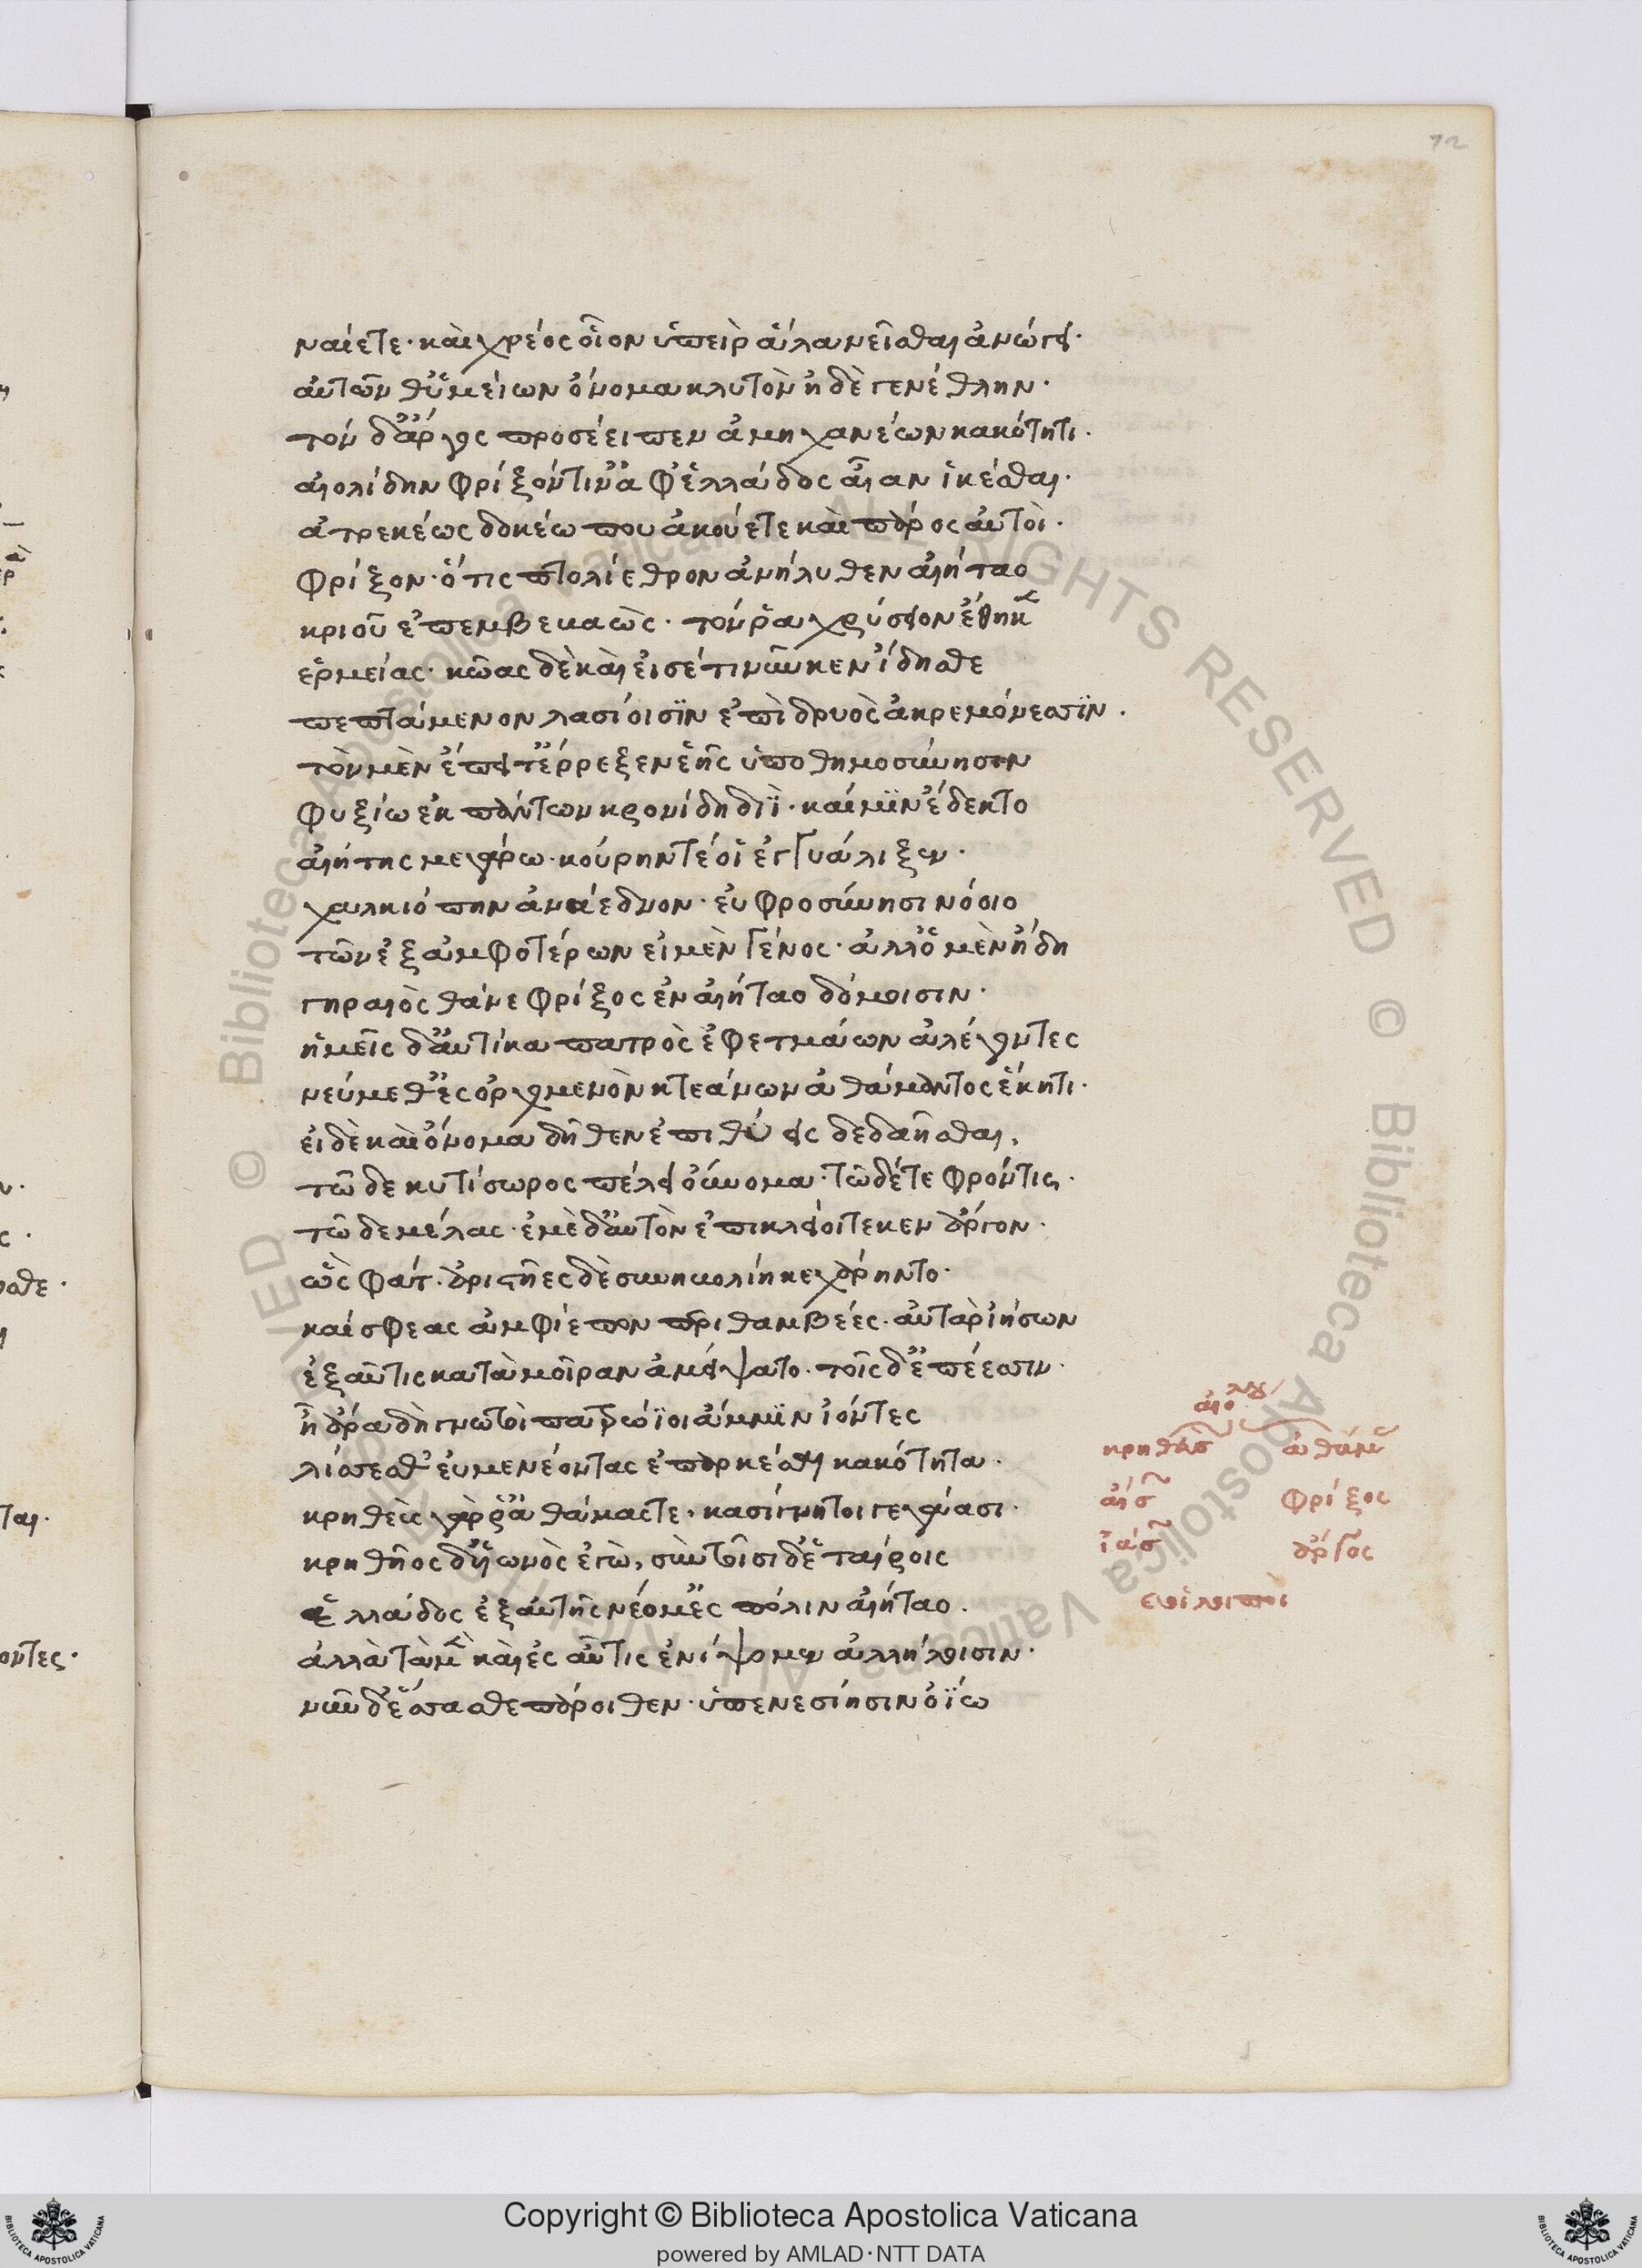 72
ναίετε· καὶ χρέος οἷον ὑπεὶρ ἅλα νεῖσθαι ἀνώγει·
αὐτῶν θ' ὑμείων ὄνομα κλυτὸν ἠδὲ γενέθλην·
τὸν δ' Ἄργος προσέειπεν ἀμηχανέων κακότητι·
αἰολίδην Φρίξον τιν' ἀφ' ἑλλάδος αἶαν ἱκέσθαι·
ἀτρεκέως δοκέω που ἀκούετε καὶ πάρος αὐτοὶ·
Φρίξον· ὅτις πτολίεθρον ἀνήλυθεν αἰήταο
κριοῦ ἐπεμβεβαὼς· τόν ῥα χρύσειον ἔθηκεν
ἑρμείας· κῶας δὲ καὶ εἰσέτι νῦν κεν ἴδησθε
πεπτάμενον λασίοισϊν ἐπὶ δρυὸς ἀκρεμόνεσσϊν·
τὸν μὲν ἔπειτ' ἔρρεξεν ἑῆς ὑποθημοσύνησιν
Φυξίω ἐκ πάντων κρονίδη διῒ· καί μϊν ἔδεκτο
αἰήτης μεγάρω· κούρην τέ οἱ ἐγγυάλιξεν·
χαλκιόπην ἀνάεδνον· ἐυφροσύνησι νόοιο
τῶν ἐξ ἀμφοτέρων εἰμὲν γένος· ἀλλ' ὁ μὲν ἤδη
γηραιὸς θάνε Φρίξος ἐν αἰήταο δόμοισιν·
ἡμεῖς δ' αὐτίκα πατρὸς ἐφετμάων ἀλέγοντες
νεύμεθ' ἐς ὀρχομενὸν κτεάνων ἀθάμαντος ἕκητι·
εἰ δὲ καὶ ὄνομα δῆθεν ἐπιθύεις δεδαῆσθαι,
τῶ δε κυτίσωρος πέλει οὔνομα· τῶ δέ τε Φρόντις·
τῶ δε μέλας· ἐμὲ δ' αὐτὸν ἐπικλείοιτε κεν ἄργον·
ὣς φάτ'· ἀριστῆες δὲ συνηβολίη κεχάρηντο·
καί σφεας ἀμφίεπον περιθαμβέες· αὐτὰρ ἰήσων
ἐξαῦτις κατὰ μοῖραν ἀμείψατο· τοῖσδ' ἐπέεσσιν·
ἦ ἄρα δὴ γνωτοὶ πατρώϊοι ἄμμϊν ἰόντες
λίσσεσθ' εὐμενέοντας ἐπαρκέσαι κακότητα·
κρηθεὺς γάρ ῥ' ἀθάμας τε· κασίγνητοι γεγάασι·
κρηθῆος δ' υἱωνὸς ἐγὼ, σὺν τοῖσι δ' ἑταίροις
ἑλλάδος ἐξ αὐτῆς νέομ' ἐς πόλιν αἰήταο·
ἀλλὰ τὰ μὲν καὶ ἐς αὖτις ἐνίψομεν ἀλλήλοισιν·
νῦν δ' ἕσσασθε πάροιθεν· ὑπ' ἐνεσίησιν ὀΐω
αἰολου
κρηθεὺς ἀθάμας
αἴσ Φρίξος
ἰάσ ἄργος
Copyright © Biblioteca Apostolica Vaticana
powered by AMLAD·NTT DATA